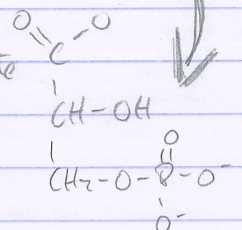 O O
C
CH-OH
O
CH₂-O-P-O⁻
O⁻